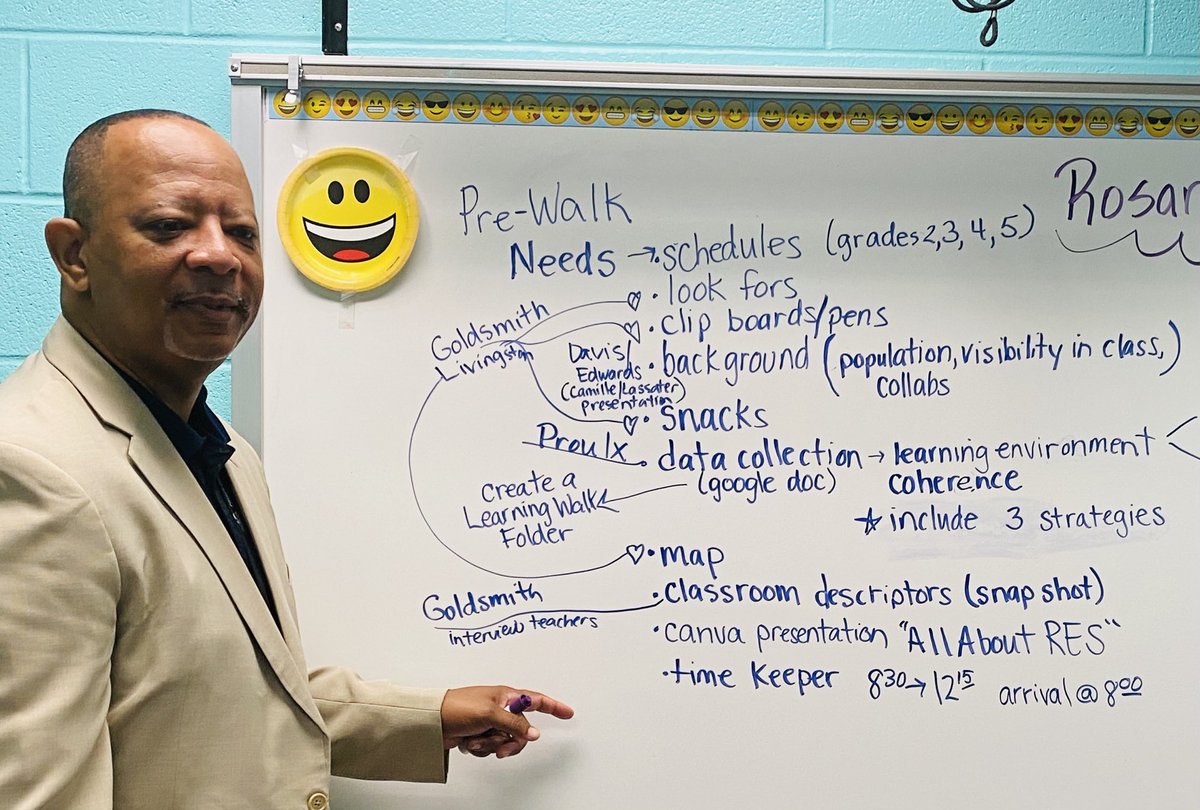 Pre-Walk
Rosar
Needs → • schedules (grades 2, 3, 4, 5)
• look fors
Goldsmith
Livingston
• clip boards/pens
Davis/
Edwards
(Camille/Lassater)
presentation
• background (population, visibility in class,)
collabs
• snacks
Proulx
• data collection → learning environment
(google doc)
coherence
Create a
Learning Walk
Folder
☆ include 3 strategies
• map
Goldsmith
interview teachers
• classroom descriptors (snap shot)
• canva presentation "All About RES"
• time keeper 8 30 → 12 15 arrival @ 8 00